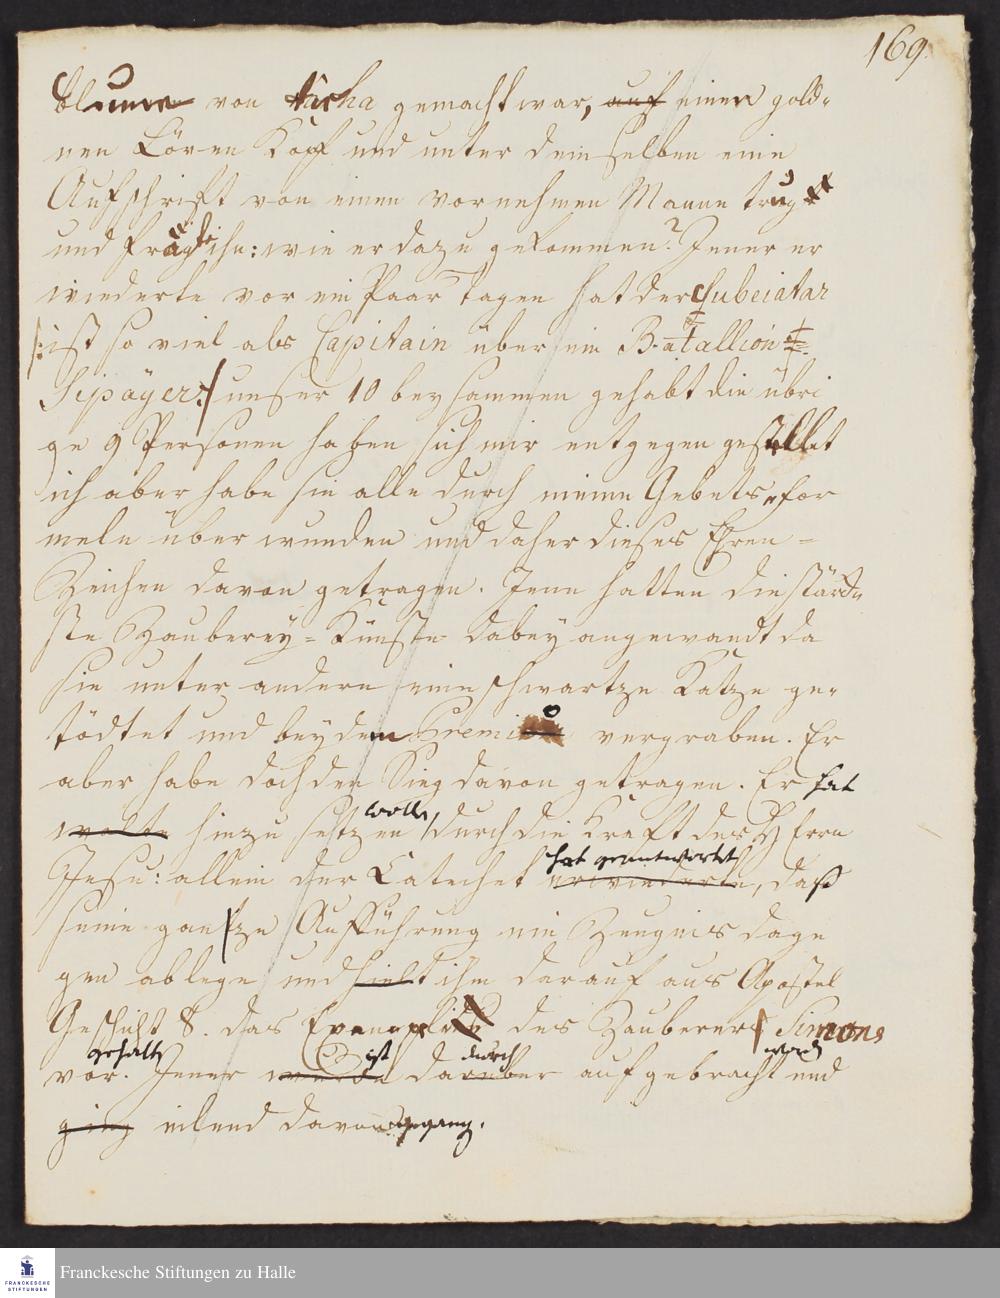 169.
blume von tascha gemacht war, auf einen gold-
nen Löwen Kopf und unter demselben eine
Aufschrift von einen vornehmen Manne trug
und fragte ihn: wie er dazu gekommen? Jener er
wiederte vor ein Paar Tagen hat der Subeiatar
/: ist so viel als Capitain über ein Batallion
Sipayer :/ unser 10 beysammen gehabt die übri
ge 9 Personen haben sich mir entgegen gestellet
ich aber habe sie alle durch meine Gebets-for
meln überwunden und daher dieses Ehren-
Zeichen davon getragen. Jene hatten die stärck-
ste Zauberey-Künste dabey angewandt da
sie unter andern eine schwartze Katze ge-
tödtet und bey dem vergraben. Er
aber habe doch den Sieg davon getragen. Er hat
wolte hinzu setzen wollen, durch die Kraft des Herrn
Jesu: allein der Catechet erwiederte hat geantwortet, daß
seine gantze Aufführung ein Zeugnis dage
gen ablege und hielt ihm darauf aus Apostel
Geschicht 8. das Exempel des Zauberers Simons
vor. gehalten Jener wurde ist darüber durch aufgebracht word und
ging eilend davon gegang.
Franckesche Stiftungen zu Halle
FRANCKESCHE
STIFTUNGEN